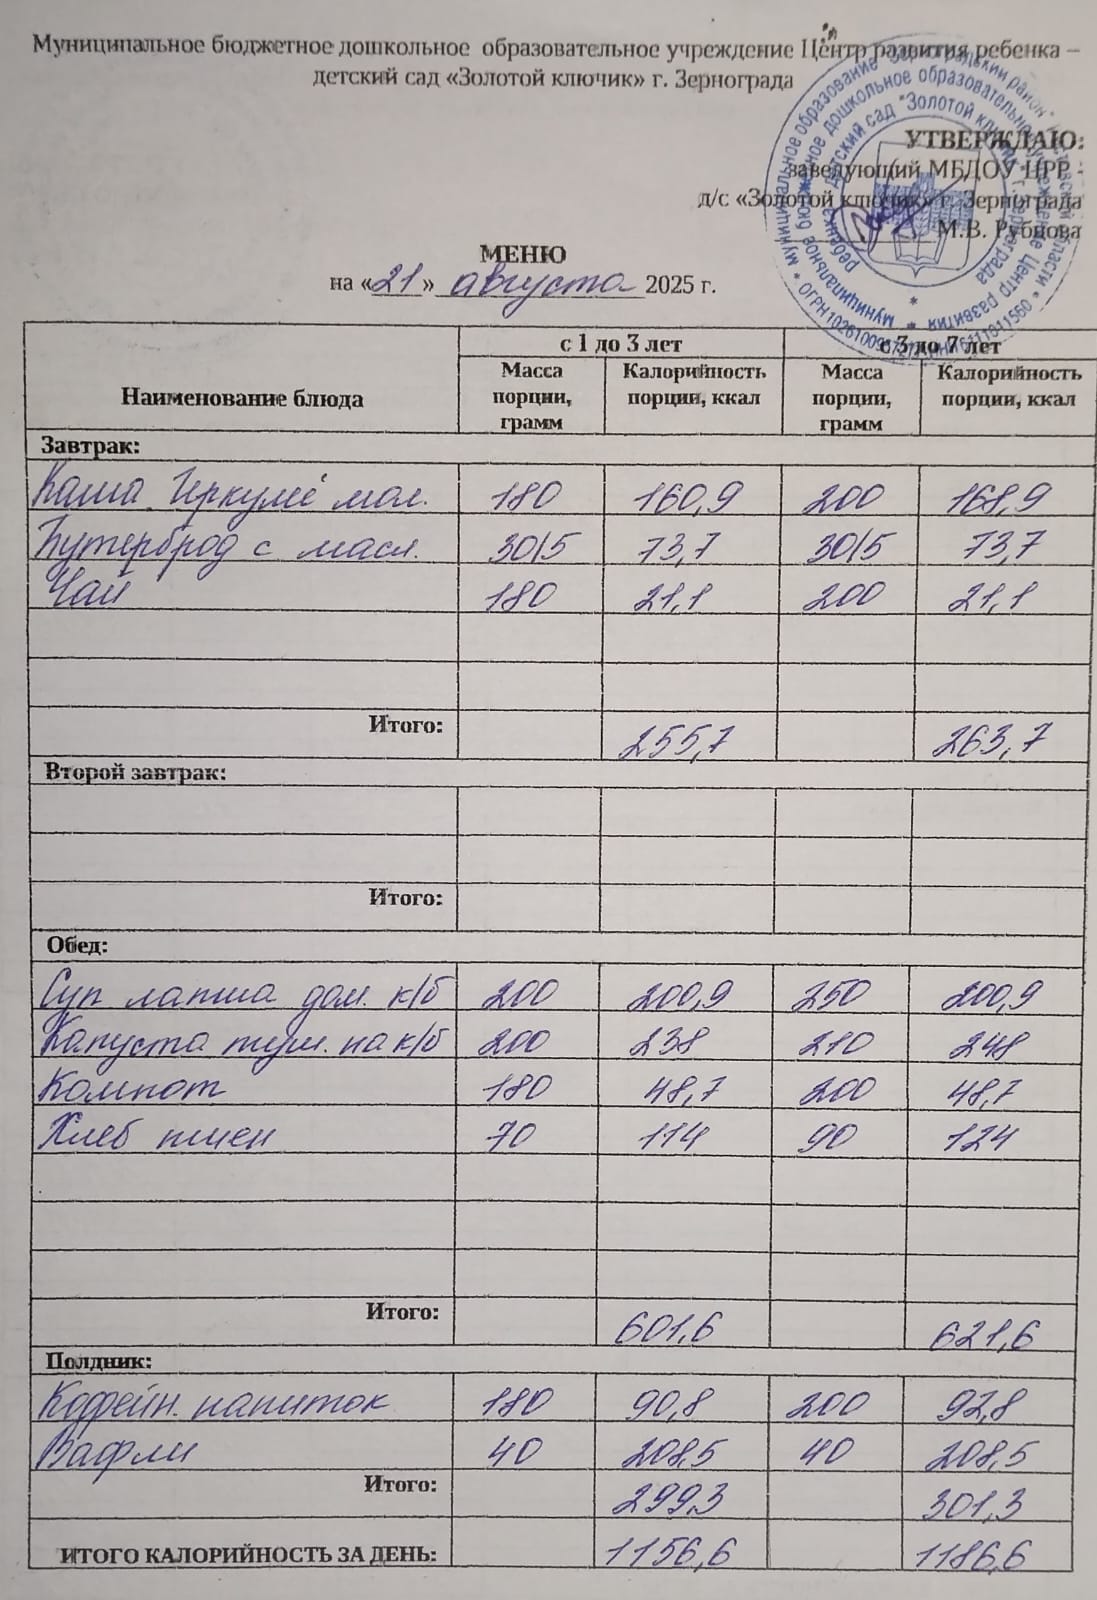 Муниципальное бюджетное дошкольное образовательное учреждение Центр развития ребенка –
детский сад «Золотой ключик» г. Зернограда
УТВЕРЖДАЮ:
заведующий МБДОУ ЦРР -
д/с «Золотой ключик» г. Зернограда
М.В. Рубцова
МЕНЮ
на «21» августа 2025 г.
Наименование блюда с 1 до 3 лет с 3 до 7 лет
Масса порции, грамм Калорийность порции, ккал Масса порции, грамм Калорийность порции, ккал
Завтрак:
Каша "Геркулес" мол. 180 160,9 200 168,9
Бутерброд с масл. 30/5 73,7 30/5 73,7
Чай 180 21,1 200 21,1
Итого: 255,7 263,7
Второй завтрак:
Итого:
Обед:
Суп лапша дом. к/б 200 200,9 250 200,9
Капуста туш. на к/б 200 238 210 248
Компот 180 48,7 200 48,7
Хлеб пшен 70 114 90 124
Итого: 601,6 621,6
Полдник:
Кофейн. напиток 180 90,8 200 92,8
Вафли 40 208,5 40 208,5
Итого: 299,3 301,3
ИТОГО КАЛОРИЙНОСТЬ ЗА ДЕНЬ: 1156,6 1186,6